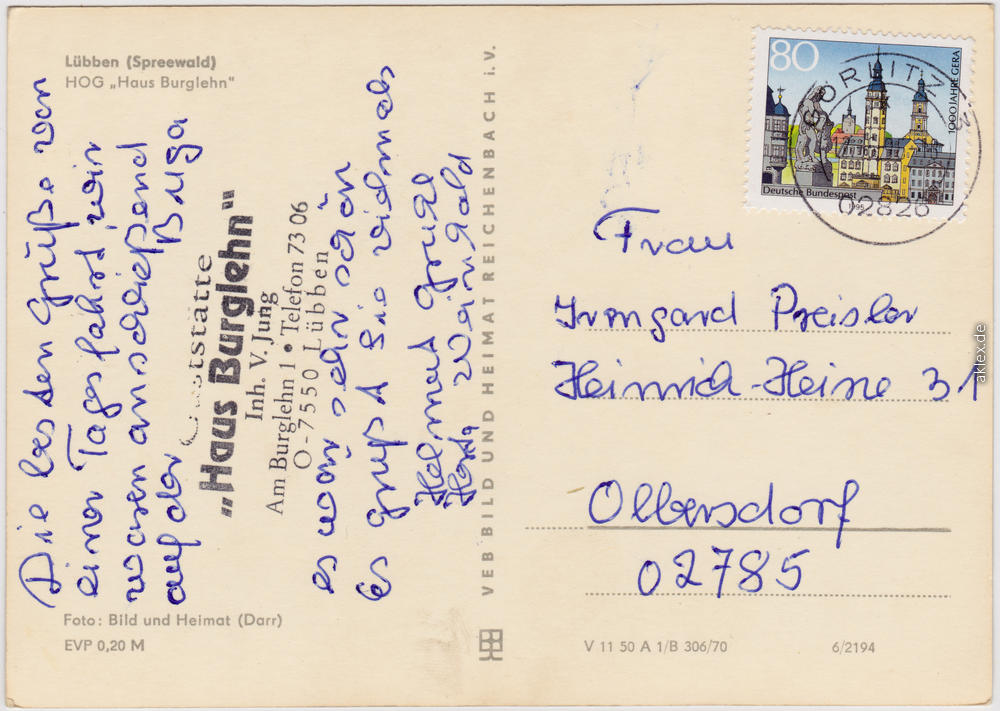 Lübben (Spreewald)
HOG „Haus Burglehn"
Die besten Grüße von
einer Tagesfahrt, wir
waren anschließend
auf der Buga
Gaststätte
„Haus Burglehn"
Inh. V. Jung
Am Burglehn 1 • Telefon 73 06
O-7550 Lübben
es war sehr schön
Es grüßt Sie vielmals
Helmut
Herta Weinhold
Foto: Bild und Heimat (Darr)
EVP 0,20 M
VEB BILD UND HEIMAT REICHENBACH i. V.
80
1000 JAHRE GERA
Deutsche Bundespost
1995
GÖRLITZ
02826
Frau
Irmgard Preisler
Heinrich-Heine 31
Olbersdorf
02785
V 11 50 A 1/B 306/70
6/2194
aklex.de